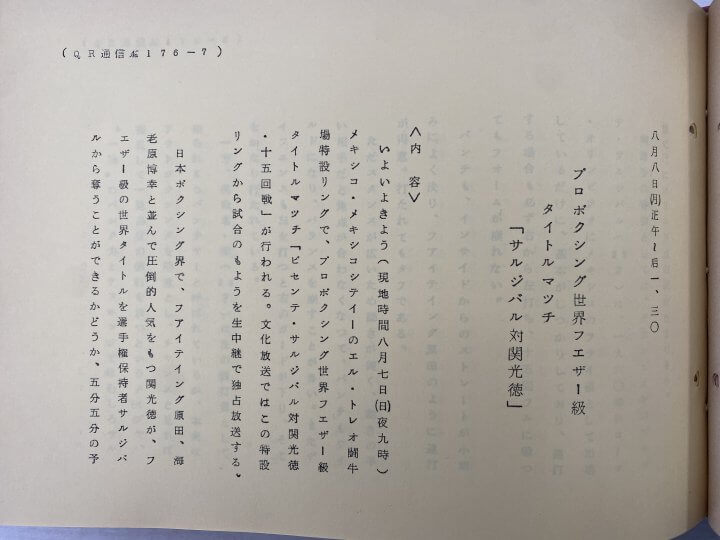 (QR通信№176-7)
八月八日(月)正午~后一、三〇
プロボクシング世界フエザー級
タイトルマッチ
「サルジバル対関光徳」
<内容>
いよいよきよう(現地時間八月七日(日)夜九時)
メキシコ・メキシコシテイーのエル・トレオ闘牛
場特設リングで、プロボクシング世界フエザー級
タイトルマツチ「ビセンテ・サルジバル対関光徳
・十五回戦」が行われる。文化放送ではこの特設
リングから試合のもようを生中継で独占放送する。
日本ボクシング界で、フアイテイング原田、海
老原博幸と並んで圧倒的人気をもつ関光徳が、フ
エザー級の世界タイトルを選手権保持者サルジバ
ルから奪うことができるかどうか、五分五分の予